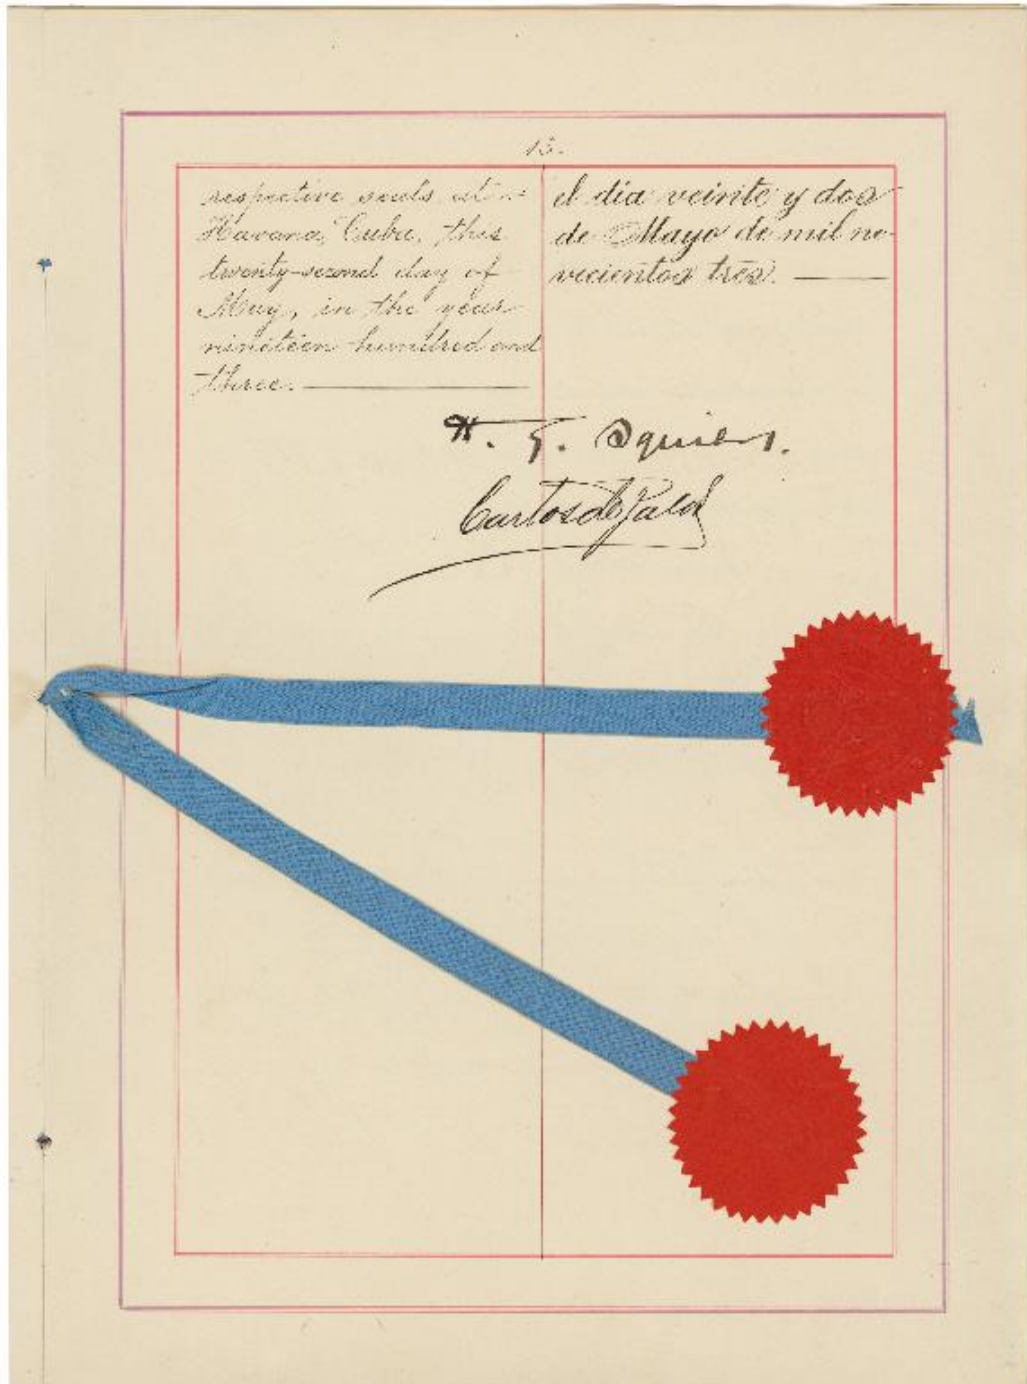 13.
respective seals at
Havana, Cuba, this
twenty-second day of
May, in the year
nineteen hundred and
three.
el dia veinte y dos
de Mayo de mil no-
vecientos tres.
H. G. Squiers.
Carlos de Zaldo